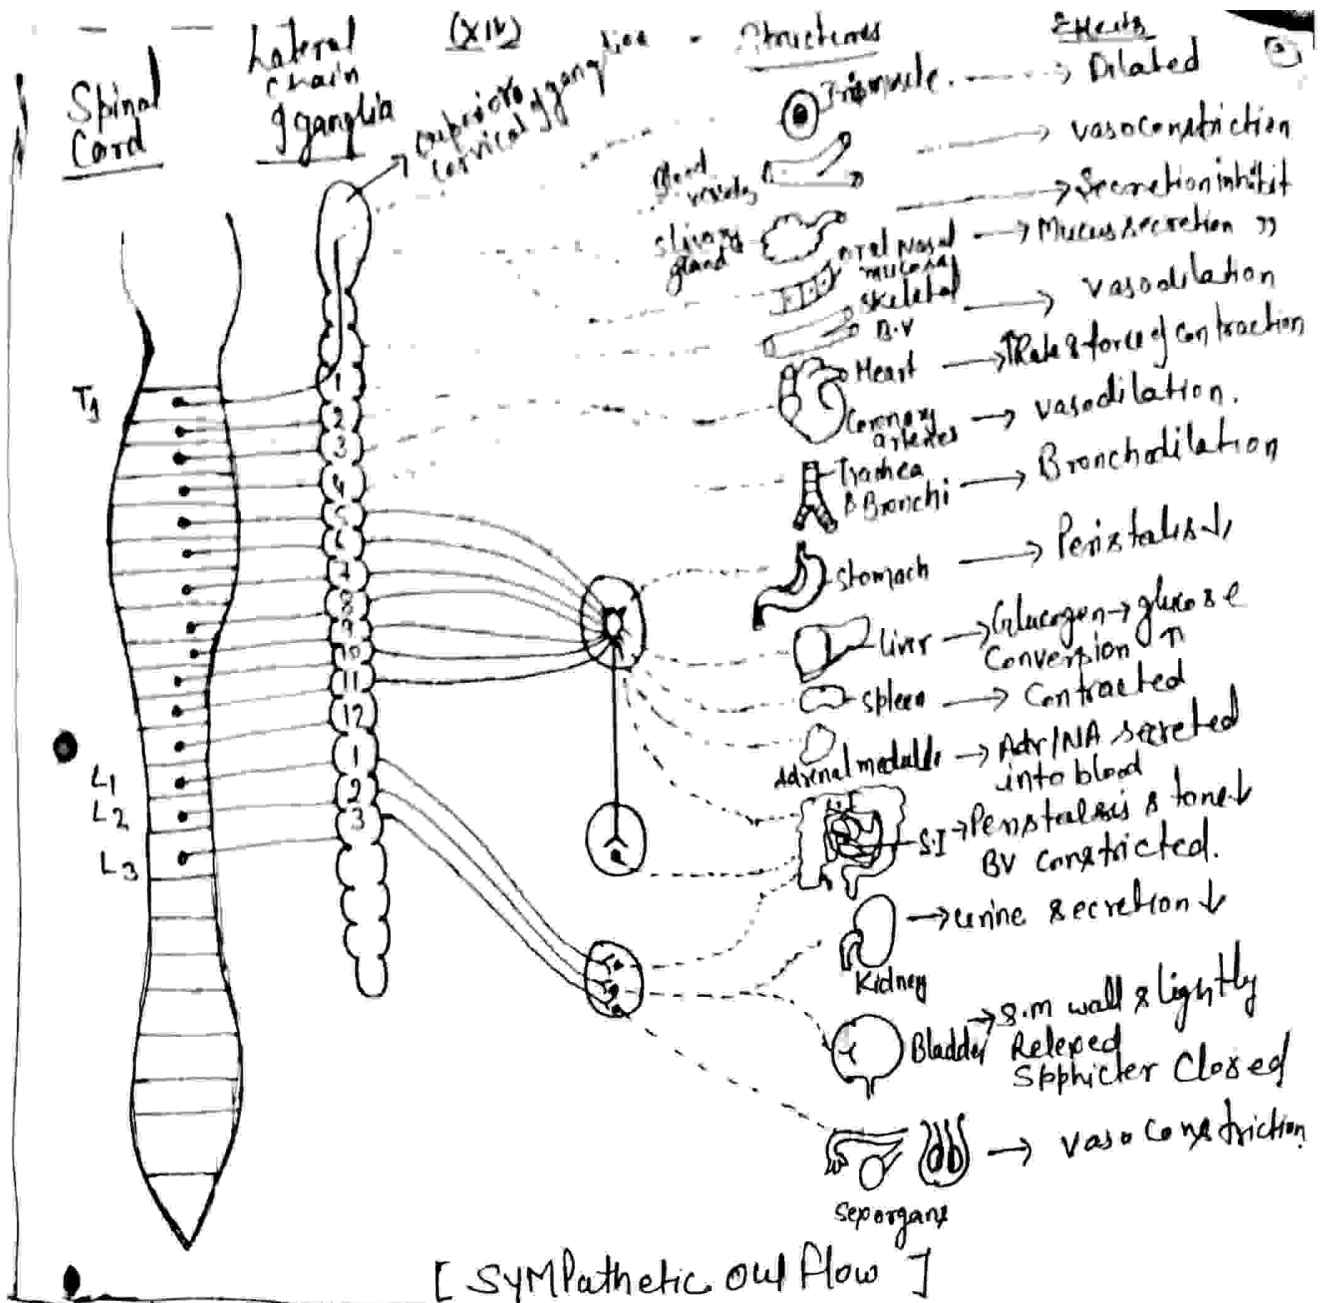 Spinal
Cord
Lateral
Chain
of ganglia
(XIV)
Superior
cervical ganglion
Structures
Effects
Iris muscle. → Dilated
Blood
vessels → vasoconstriction
Slivary
gland → Secretion inhibit
oral Nasal
mucosa → Mucus secretion ”
Skeletal
B.V → vasodilation
Heart → ↑Rate & force of contraction
Coronary
arteries → vasodilation.
Trachea
& Bronchi → Bronchodilation
Stomach → Peristalsis ↓
Liver → Glucogen → glucose
Conversion ↑
Spleen → Contracted
Adrenal medulla → Adr/NA secreted
into blood
S.I → Peristalsis & tone ↓
BV constricted.
Kidney → urine secretion ↓
Bladder → S.m wall slightly
Relexed
Spphicter Closed
Sex organs → vasoconstriction
T1
1
2
3
4
5
6
7
8
9
10
11
12
L1
L2
L3
1
2
3
[ SYMPathetic Out flow ]